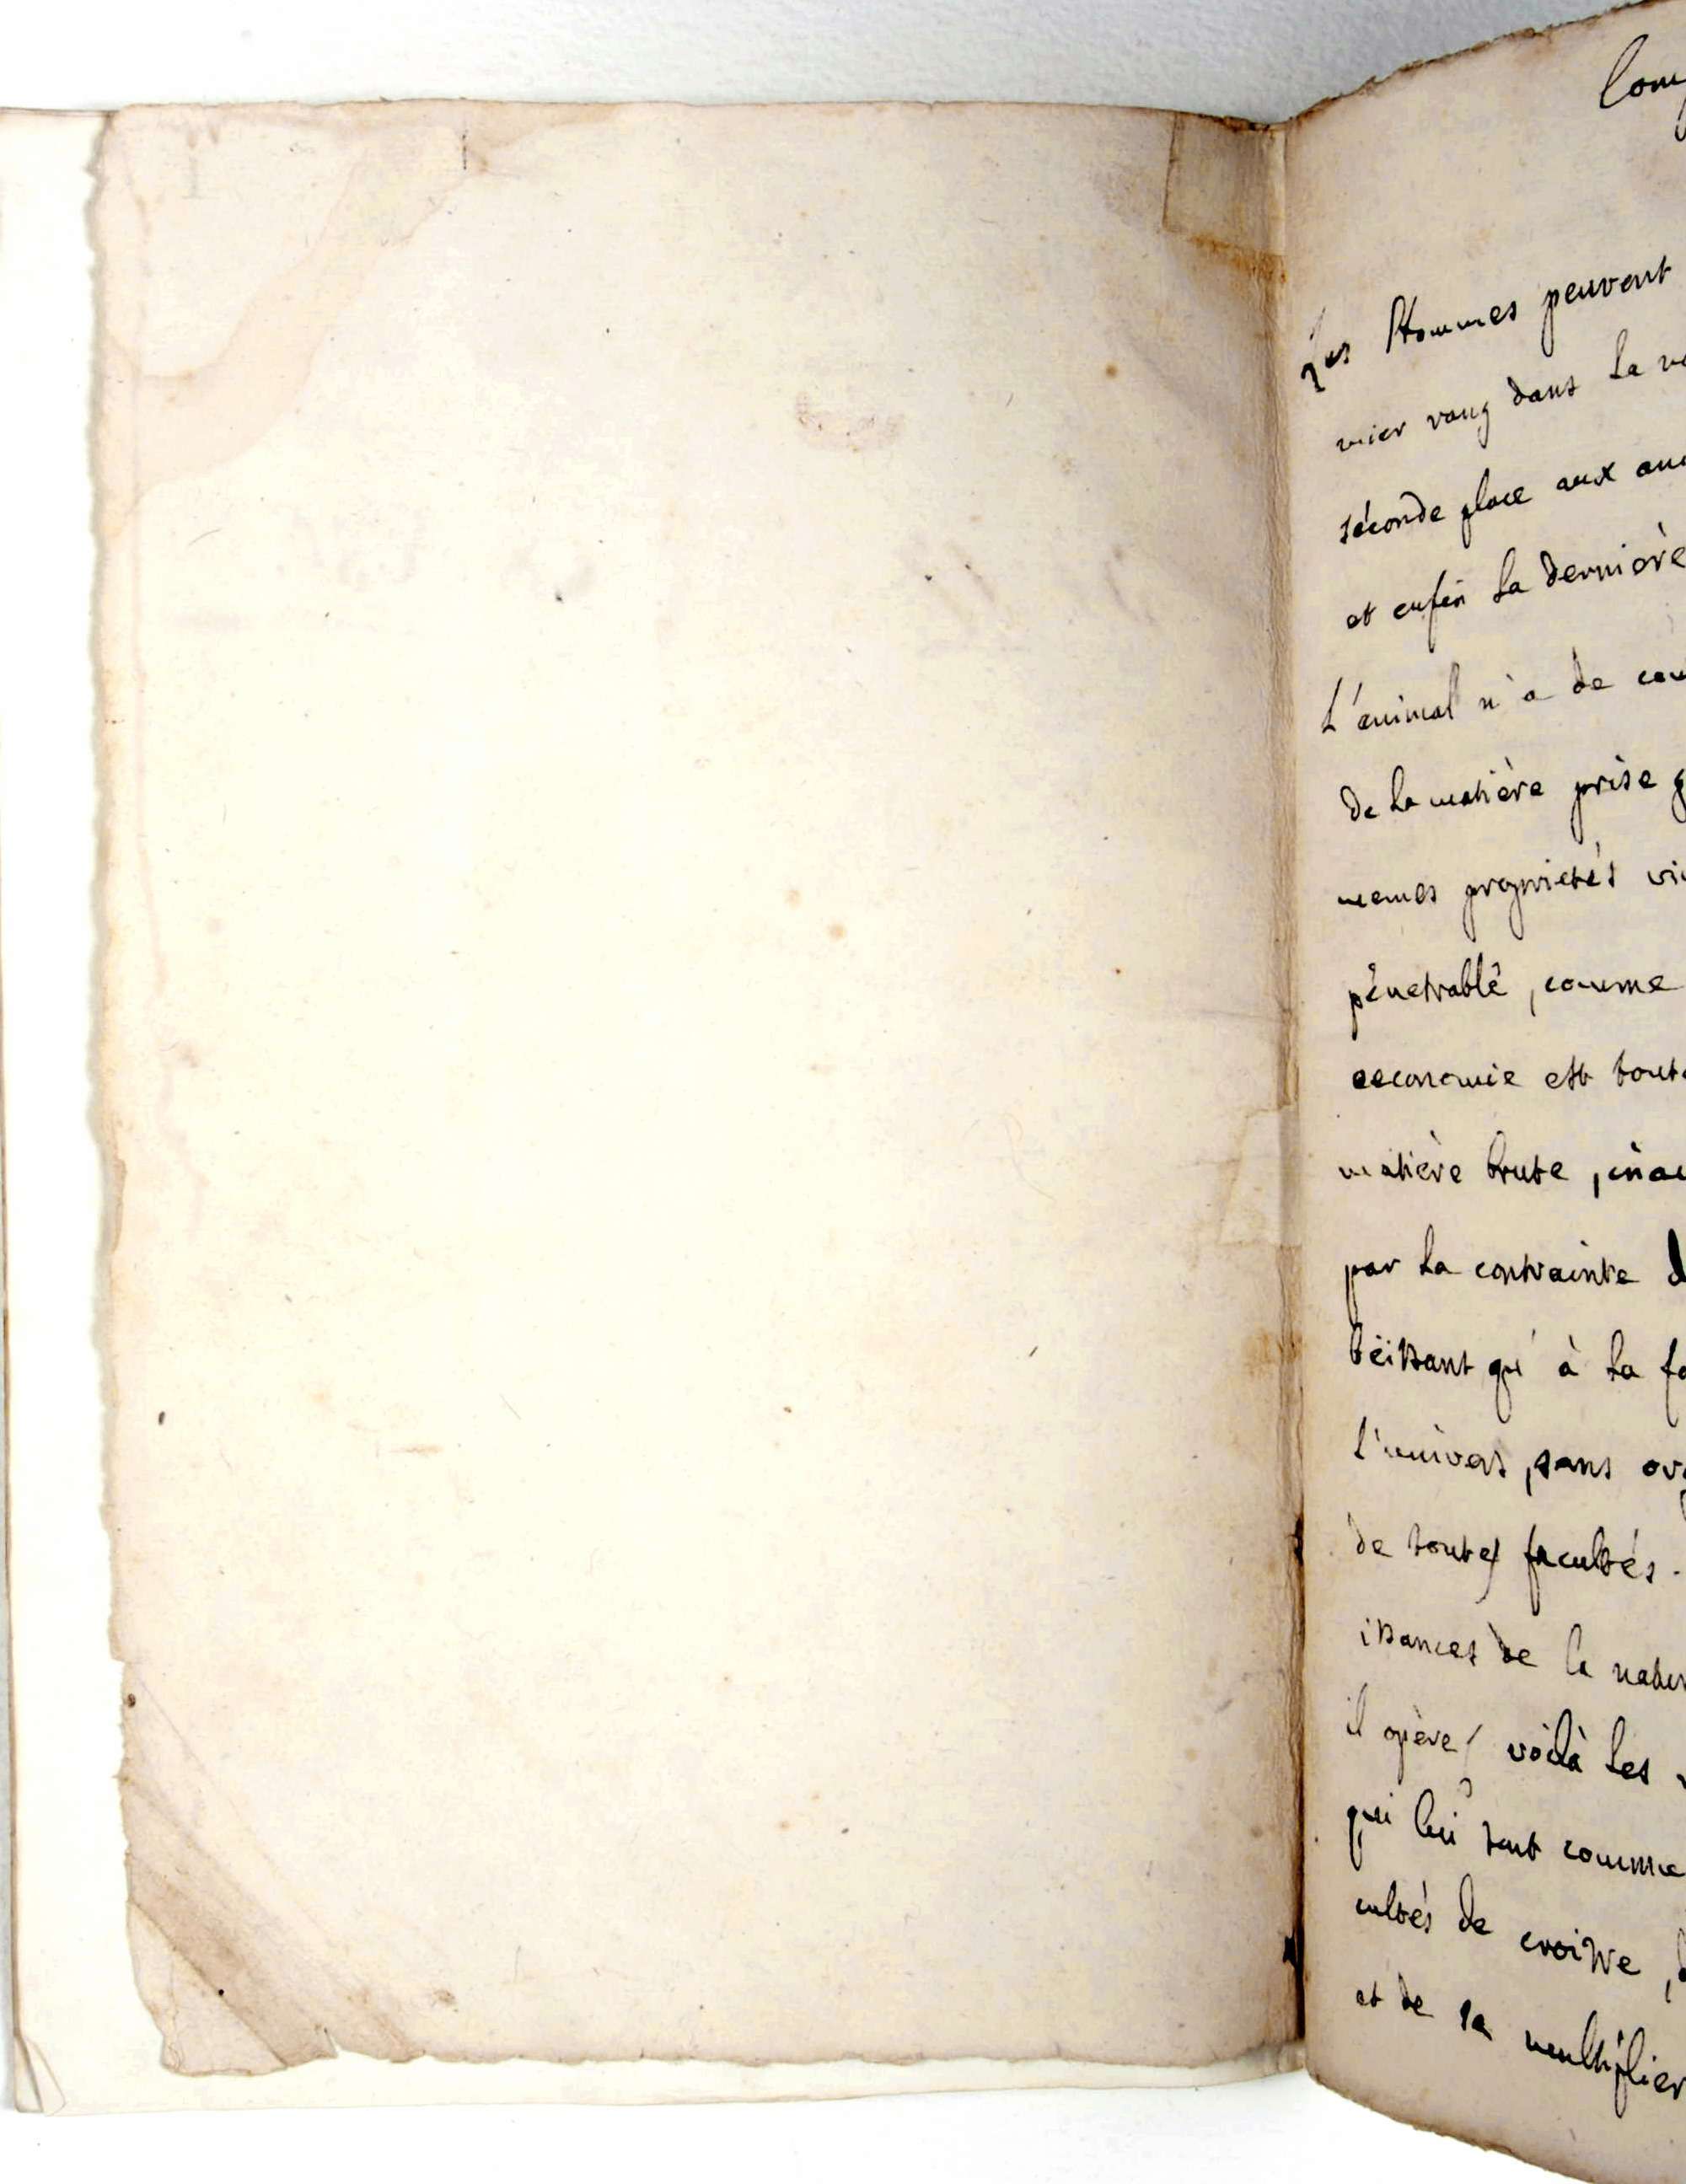 Com
Les Hommes peuvent
mier rang dans la
séconde place aux
et enfin la dernière
L'animal n'a de
de la matière prise
memes proprietés
pénetrablé, comme
oeconomie est
matière brute,
par la contrainte
béissant qu'à la
l'univers, sans
de toutes facultés.
issances de la
il opère, voilà les
qui lui sont comme
cultés de croître,
et de se multiplier